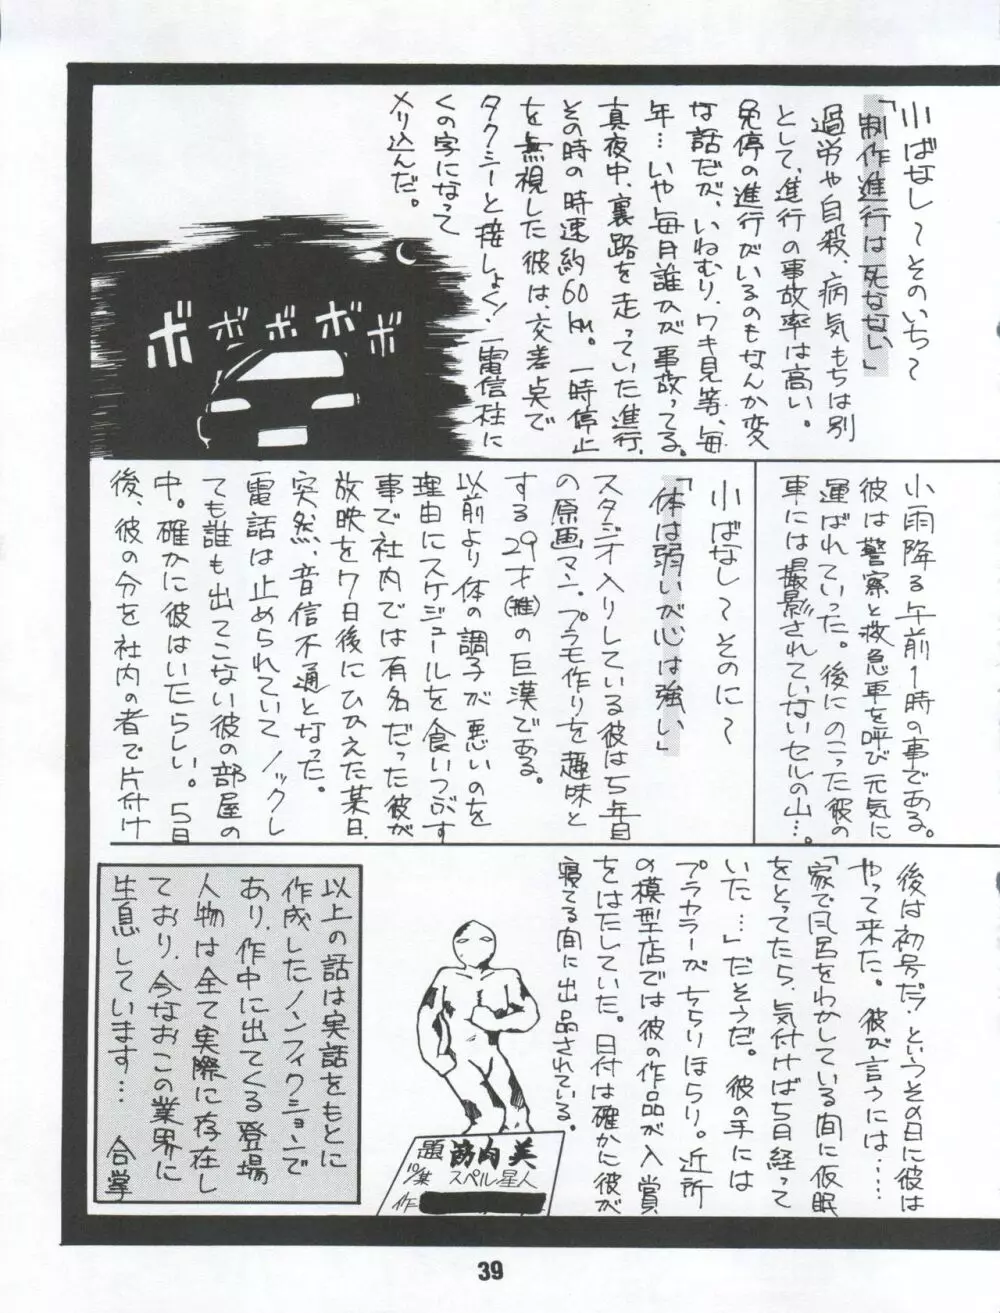 小ばなし～そのいち～
「制作進行は死なない」
過労や自殺、病気もちは別
として、進行の事故率は高い。
免停の進行がいるのもなんか変
な話だが、いねむり、ワキ見等、毎
年…いや毎月誰かが事故ってる。
真夜中、裏路を走っていた進行、
その時の時速約60km。一時停止
を無視した彼は、交差点で
タクシーと接しょく！電信柱に
くの字になって
メリ込んだ。
ボ
ボ
ボ
ボ
ボ
小雨降る午前1時の事である。
彼は警察と救急車を呼び元気に
運ばれていった。後にのこった彼の
車には撮影されていないセルの山…。
小ばなし～そのに～
「体は弱いが心は強い」
スタジオ入りしている彼は5年目
の原画マン。プラモ作りを趣味と
する29才(推)の巨漢である。
以前より体の調子が悪いのを
理由にスケジュールを食いつぶす
事で社内では有名だった彼が
放映を7日後にひかえた某日、
突然、音信不通となった。
電話は止められていて、ノックし
ても誰も出てこない彼の部屋の
中。確かに彼はいたらしい。5日
後、彼の分を社内の者で片付け
後は初号だ！というその日に彼は
やって来た。彼が言うには……
「家で風呂をわかしている間に仮眠
をとってたら、気付けば5日経って
いた…」だそうだ。彼の手には
プラカラーがちらりほらり。近所
の模型店では彼の作品が入賞
をはたしていた。日付は確かに彼が
寝てる間に出品されている。
題 筋肉美
スペル星人
作
以上の話は実話をもとに
作成したノンフィクションで
あり、作中に出てくる登場
人物は全て実際に存在し
ており、今なおこの業界に
生息しています… 合掌
39